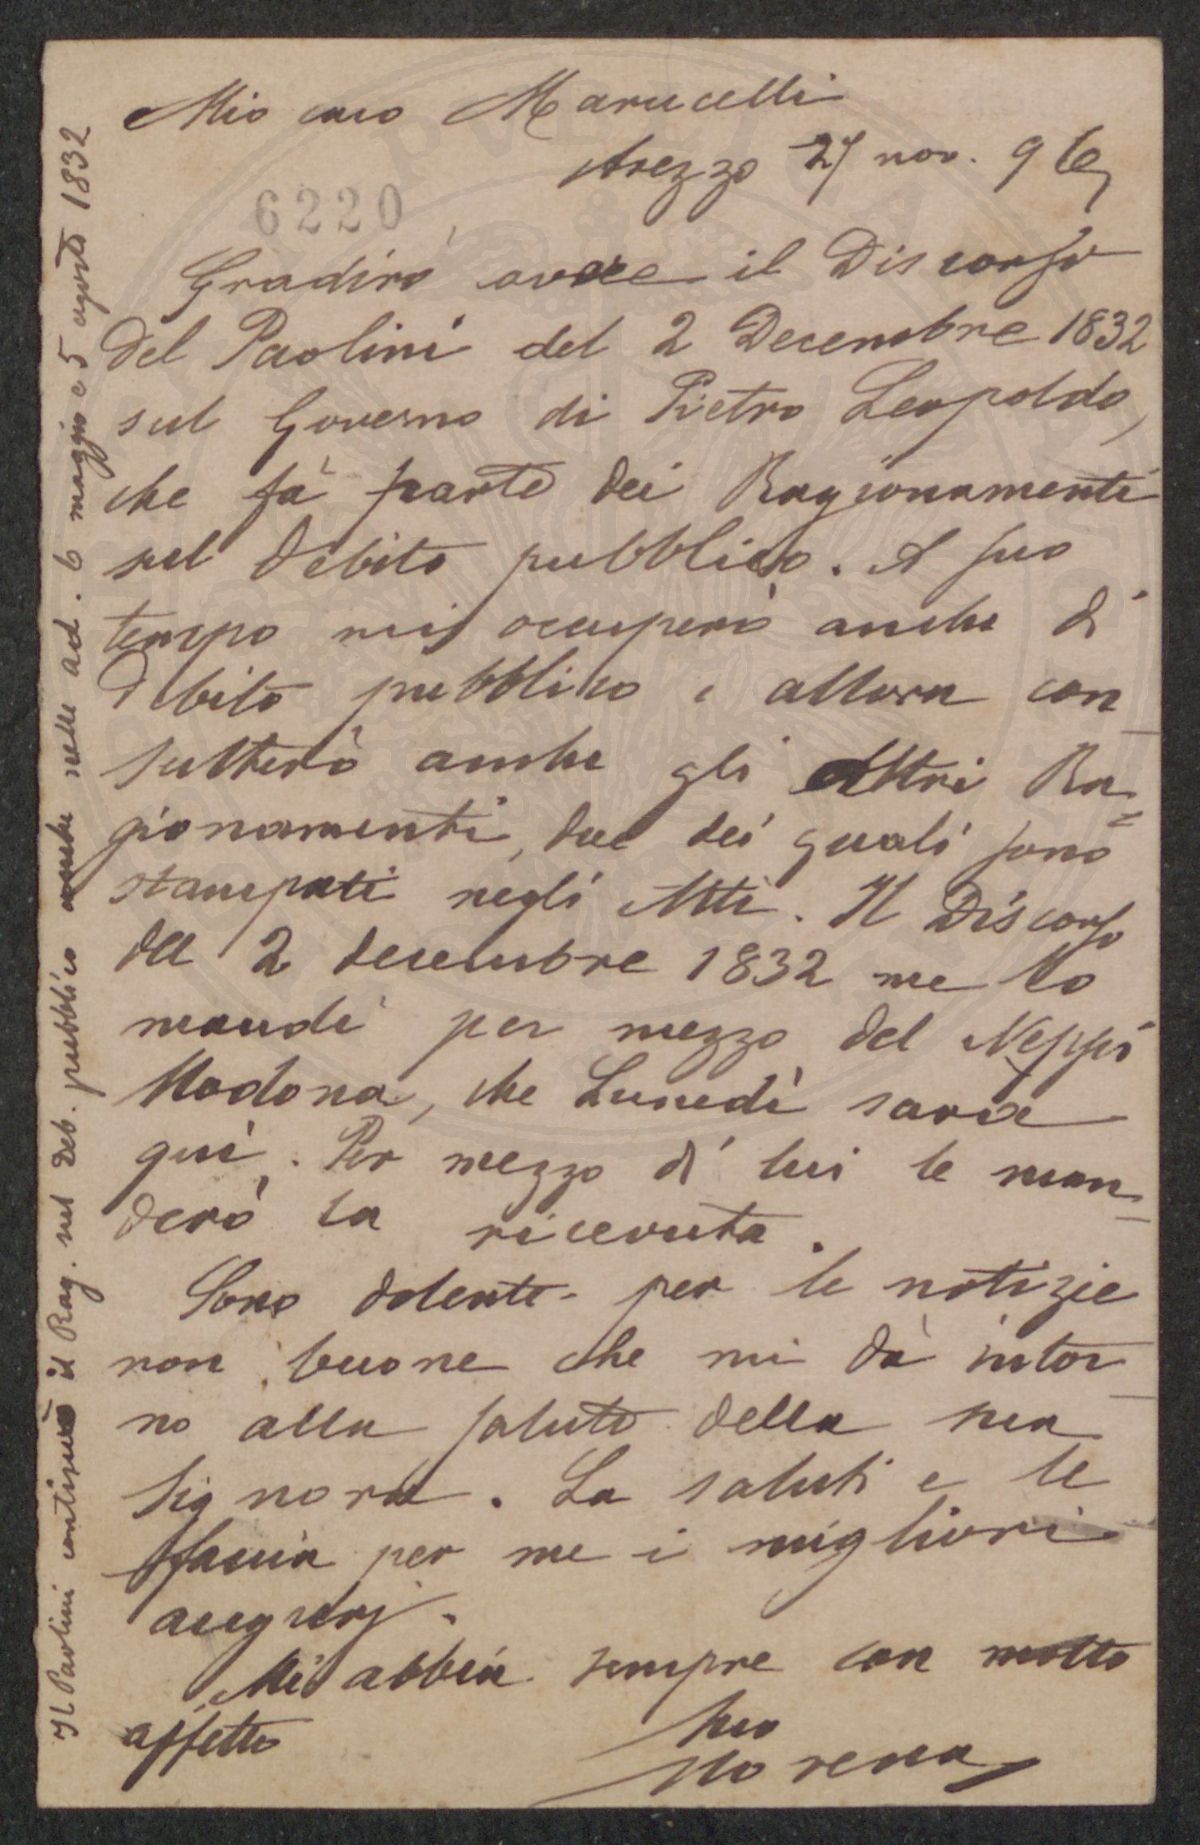 Mio caro Marucelli
Arezzo 27 nov. 96
6220
Gradirò avere il Discorso
del Paolini del 2 Decembre 1832
sul Governo di Pietro Leopoldo,
che fà parte dei Ragionamenti
sul Debito pubblico. A suo
tempo mi occuperò anche di
Debito pubblico e allora con
sulterò anche gli altri Ra=
gionamenti, due dei quali sono
stampati negli Atti. Il Discorso
del 2 decembre 1832 me lo
mandi per mezzo del Neppi
Modona, che Lunedì sarà
quì. Per mezzo di lui le man
derò la ricevuta.
Sono dolente per le notizie
non buone che mi dà intor
no alla salute della sua
Signora. La saluti e le
faccia per me i migliori
augurj.
Mi abbia sempre con molto
affetto
Suo
Morena
Il Paolini continuò il Rag. sul Deb. pubblico anche nelle ad. 6 maggio e 5 agosto 1832